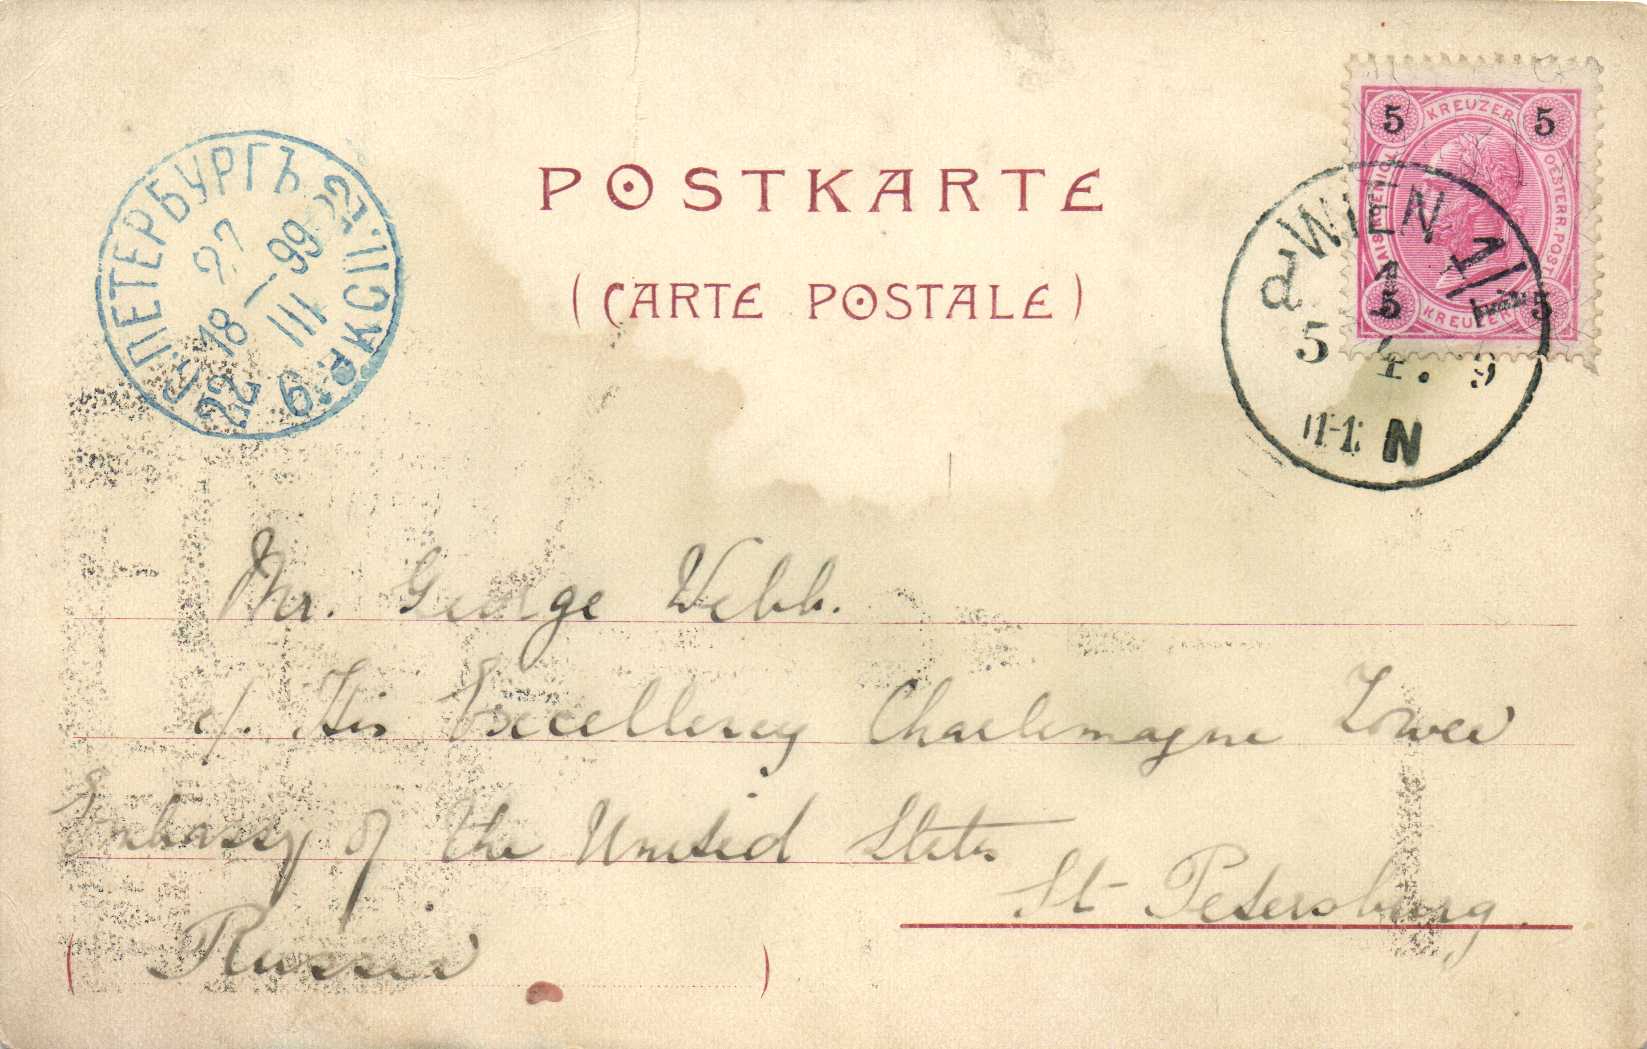 POSTKARTE
(CARTE POSTALE)
С.ПЕТЕРБУРГЪ
27
18 — 99
III
22
5 KREUZER 5
OESTERR. POST
5 KREUZER 5
WIEN 1/1
d 1
5 4. 9
N
Mr. George Webb.
c/. His Excellency Charlemagne Tower
Embassy of the United States
St Petersburg.
Russia